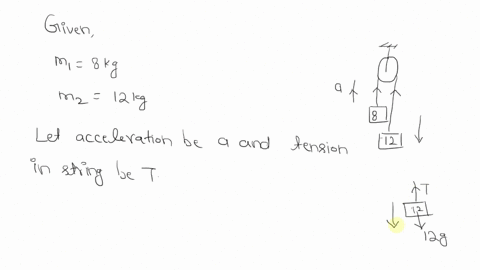 Given,
m₁ = 8 kg
m₂ = 12 kg
Let acceleration be a and tension
in string be T.
a
8
12
T
12
12g